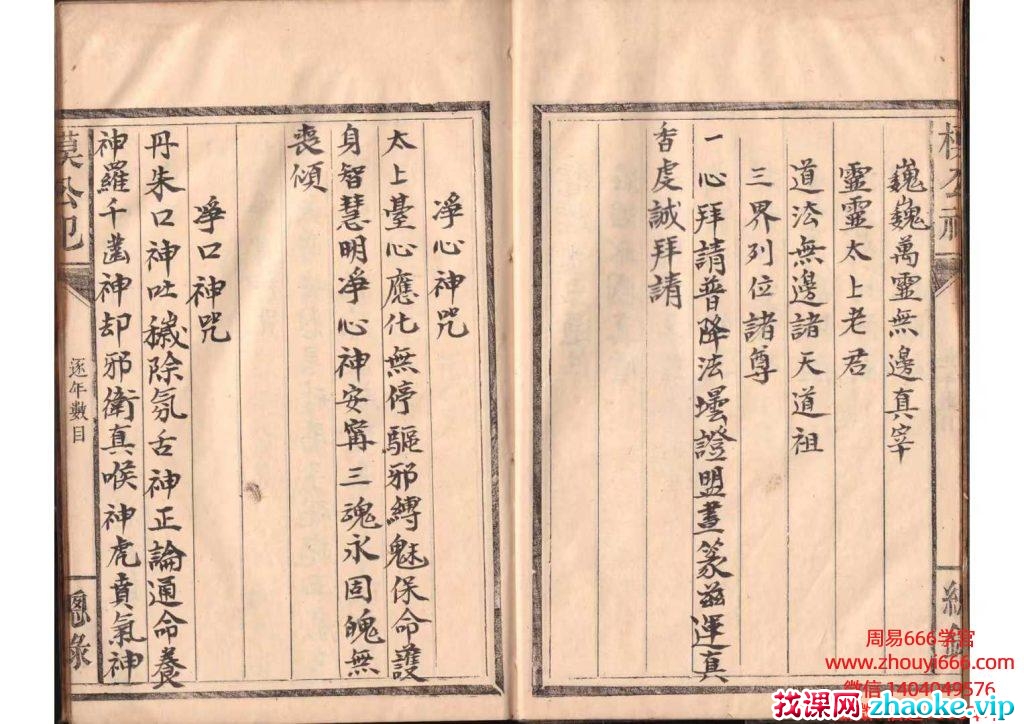 巍巍萬靈無邊真宰
靈靈太上老君
道法無邊諸天道祖
三界列位諸尊
一心拜請普降法壜證盟畫篆茲運真
香虔誠拜請
凈心神咒
太上臺心應化無停驅邪縛魅保命護
身智慧明凈心神安寗三魂永固魄無
喪傾
凈口神咒
丹朱口神吐穢除氛舌神正論通命養
神羅千凿神却邪衛真喉神虎賁氣神
公祀
逐年數目
總錄
周易666学宫
www.zhouyi666.com
微信1404049576
找课网zhaoke.vip